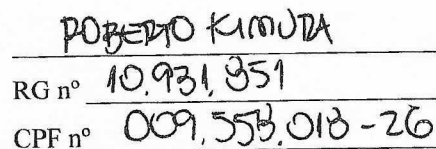 ROBERTO KIMURA
RG nº 10.931.851
CPF nº 009.553.018-26